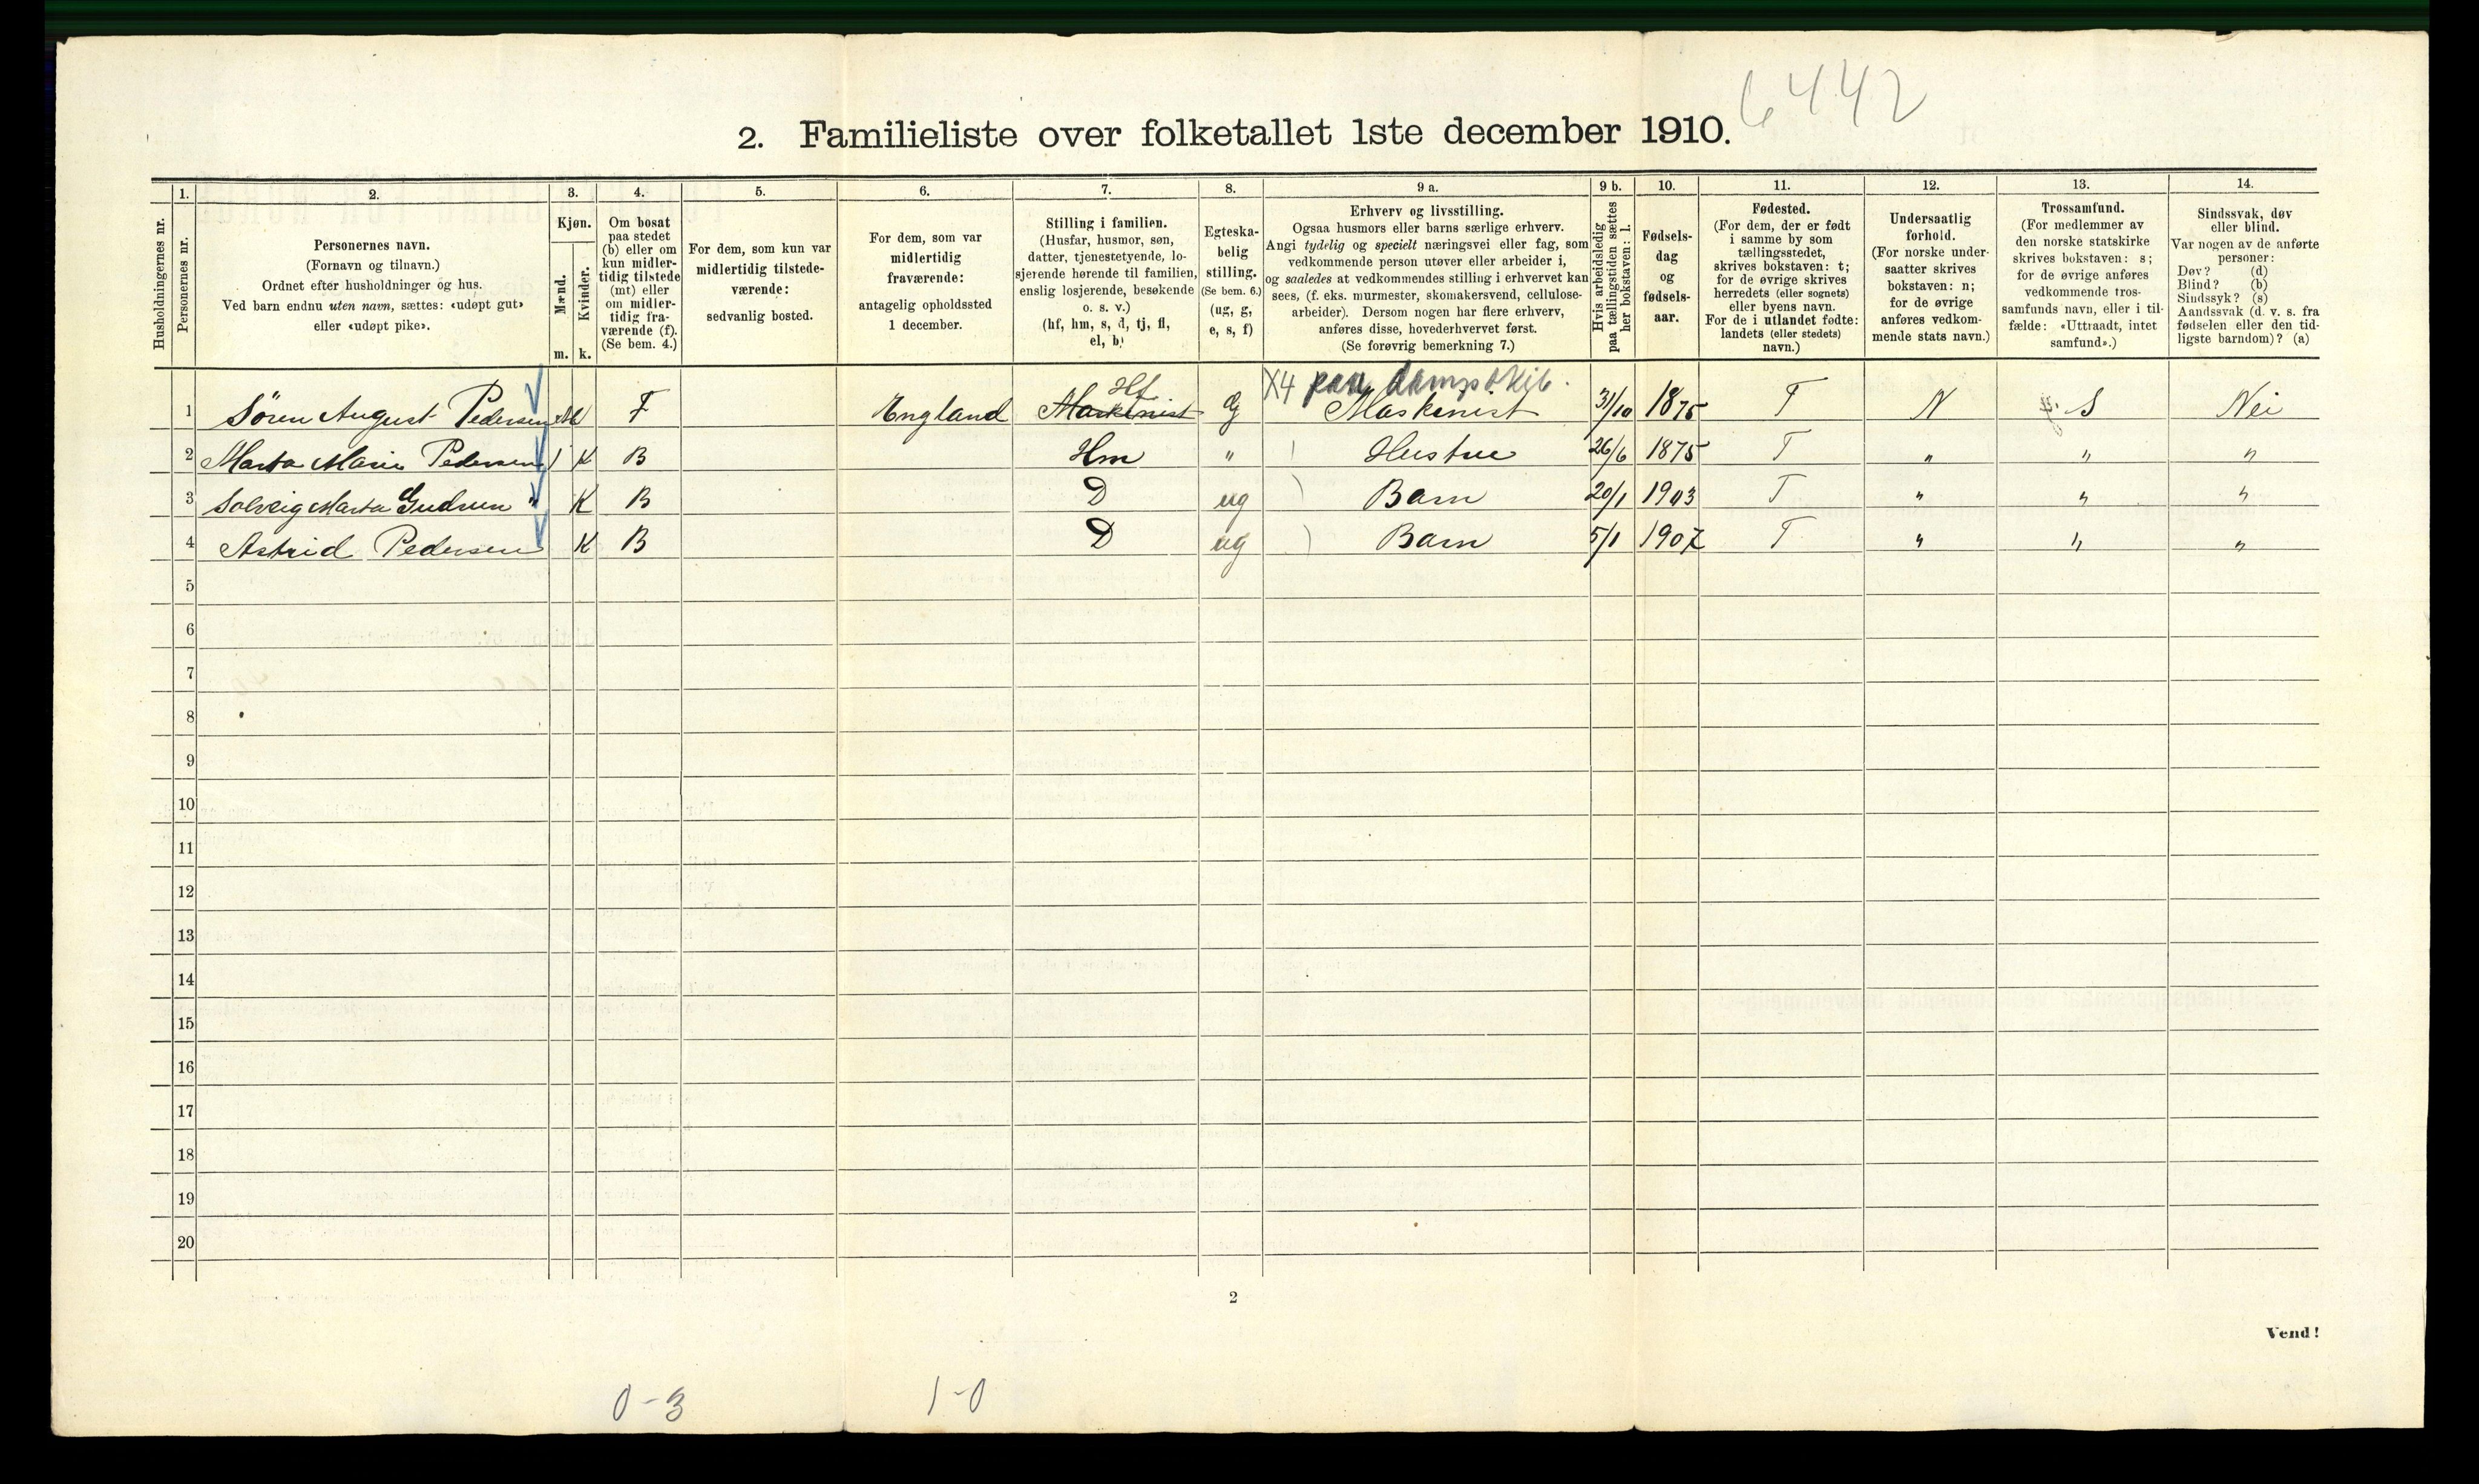 6442
2. Familieliste over folketallet 1ste december 1910.
Husholdningernes nr.
1.
Personernes nr.
2.
Personernes navn.
(Fornavn og tilnavn.)
Ordnet efter husholdninger og hus.
Ved barn endnu uten navn, sættes: «udøpt gut»
eller «udøpt pike».
3.
Kjøn.
Mænd.
Kvinder.
m. k.
4.
Om bosat
paa stedet
(b) eller om
kun midler-
tidig tilstede
(mt) eller
om midler-
tidig fra-
værende (f).
(Se bem. 4.)
5.
For dem, som kun var
midlertidig tilstede-
værende:
sedvanlig bosted.
6.
For dem, som var
midlertidig
fraværende:
antagelig opholdssted
1 december.
7.
Stilling i familien.
(Husfar, husmor, søn,
datter, tjenestetyende, lo-
sjerende hørende til familien,
enslig losjerende, besøkende
o. s. v.)
(hf, hm, s, d, tj, fl,
el, b)
8.
Egteska-
belig
stilling.
(Se bem. 6.)
(ug, g,
e, s, f)
9 a.
Erhverv og livsstilling.
Ogsaa husmors eller barns særlige erhverv.
Angi tydelig og specielt næringsvei eller fag, som
vedkommende person utøver eller arbeider i,
og saaledes at vedkommendes stilling i erhvervet kan
sees, (f. eks. murmester, skomakersvend, cellulose-
arbeider). Dersom nogen har flere erhverv,
anføres disse, hovederhvervet først.
(Se forøvrig bemerkning 7.)
9 b.
Hvis arbeidsledig
paa tællingstiden sættes
her bokstaven: l.
10.
Fødsels-
dag
og
fødsels-
aar.
11.
Fødested.
(For dem, der er født
i samme by som
tællingsstedet,
skrives bokstaven: t;
for de øvrige skrives
herredets (eller sognets)
eller byens navn.
For de i utlandet fødte:
landets (eller stedets)
navn.)
12.
Undersaatlig
forhold.
(For norske under-
saatter skrives
bokstaven: n;
for de øvrige
anføres vedkom-
mende stats navn.)
13.
Trossamfund.
(For medlemmer av
den norske statskirke
skrives bokstaven: s;
for de øvrige anføres
vedkommende tros-
samfunds navn, eller i til-
fælde: «Uttraadt, intet
samfund».)
14.
Sindssvak, døv
eller blind.
Var nogen av de anførte
personer:
Døv? (d)
Blind? (b)
Sindssyk? (s)
Aandssvak (d. v. s. fra
fødselen eller den tid-
ligste barndom)? (a)
Hf X4 paa dampskib.
1 Sören August Pedersen M F England Maskinist G Maskinist 31/10 1875 T N S Nei
2 Marta Marie Pedersen K B Hm " Hustru 26/6 1875 T " " "
3 Solveig Marta Gudrun " K B D ug Barn 20/1 1903 T " " "
4 Astrid Pedersen K B D ug Barn 5/1 1907 T " " "
5
6
7
8
9
10
11
12
13
14
15
16
17
18
19
20
2
Vend!
0-3 1-0